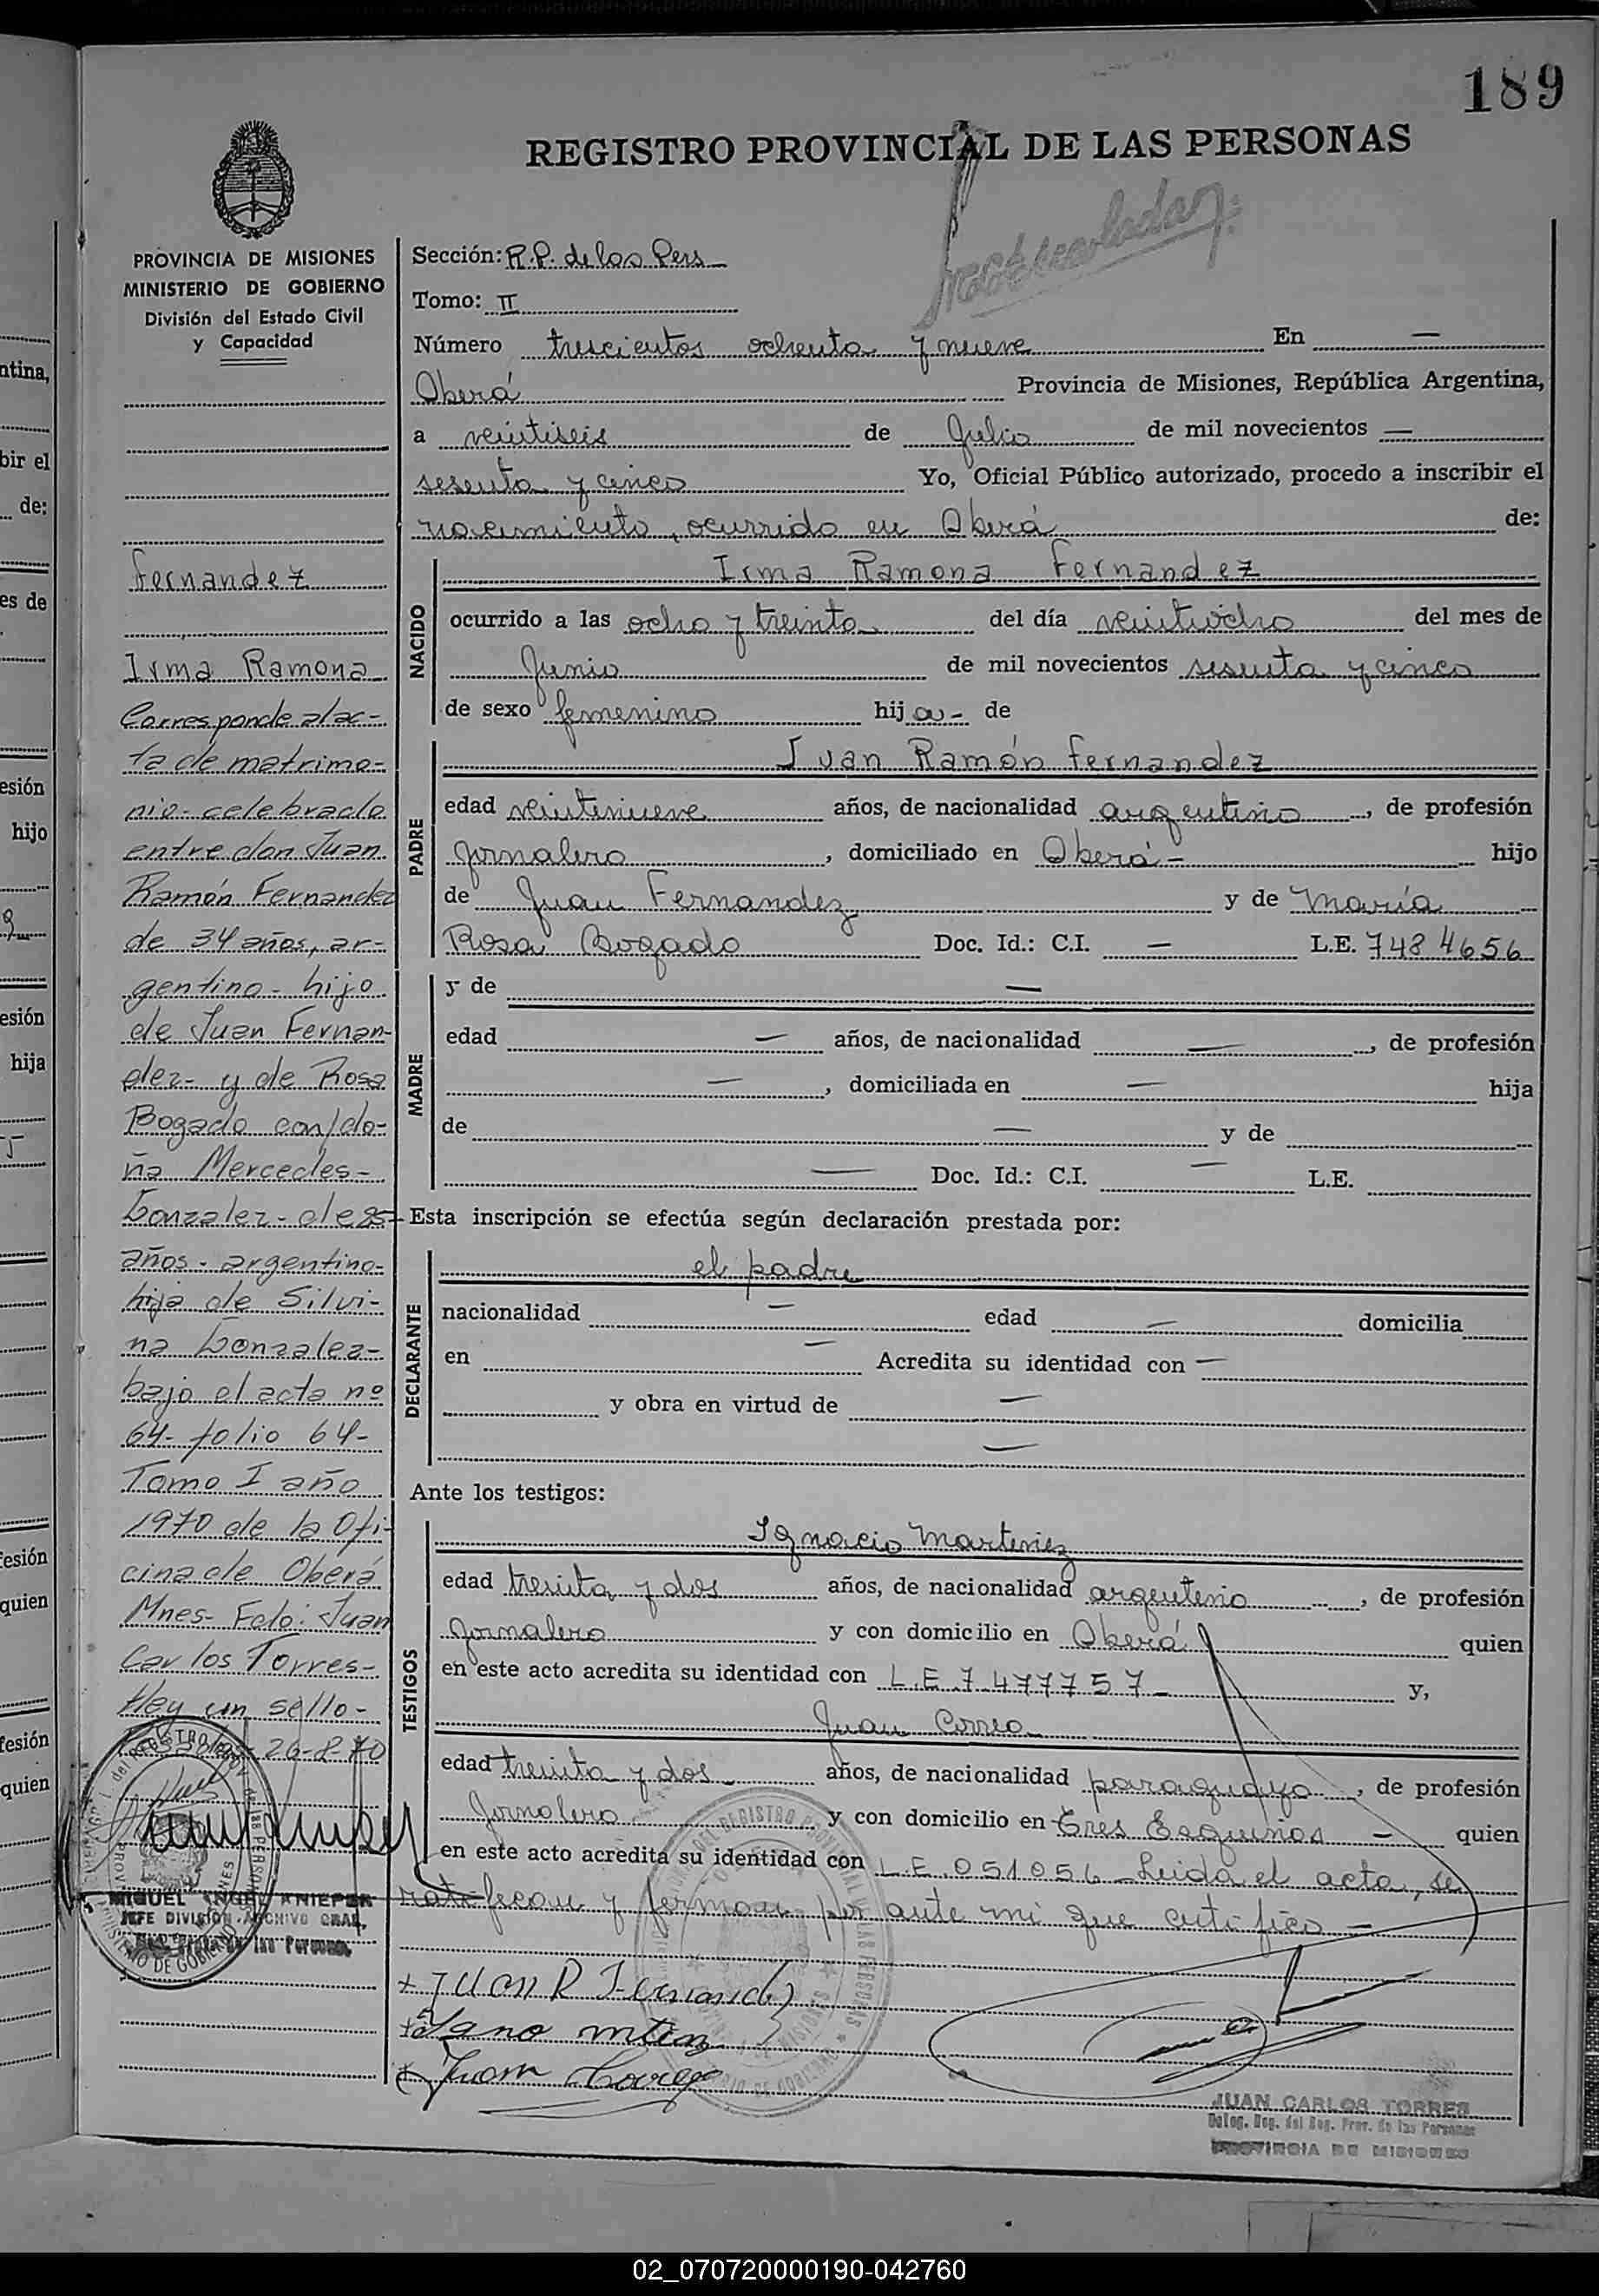 189
REGISTRO PROVINCIAL DE LAS PERSONAS
PROVINCIA DE MISIONES
MINISTERIO DE GOBIERNO
División del Estado Civil
y Capacidad
Fernandez
Irma Ramona
Corresponde al ac-
ta de matrimo-
nio-celebrado
entre don Juan
Ramón Fernandez
de 34 años, ar-
gentino- hijo
de Juan Fernan-
dez- y de Rosa
Bogado con/do-
ña Mercedes-
Gonzalez- de 25-
años- argentina-
hija de Silvi-
na Gonzalez-
bajo el acta nº
64- folio 64-
Tomo I año
1970 de la Ofi-
cina de Oberá
Mnes- Fdo: Juan
Carlos Torres-
Hay un sello-
26-8-70
JEFE DIVISIÓN ARCHIVO GRAL.
Sección: R.P. de las Pers
Tomo: II
Número trescientos ochenta y nueve En —
Oberá Provincia de Misiones, República Argentina,
a veintiseis de Julio de mil novecientos —
sesenta y cinco Yo, Oficial Público autorizado, procedo a inscribir el
nacimiento, ocurrido en Oberá de:
NACIDO
Irma Ramona Fernandez
ocurrido a las ocho y treinta del día veintiocho del mes de
Junio de mil novecientos sesenta y cinco
de sexo femenino hija- de
PADRE
Juan Ramón Fernandez
edad veintinueve años, de nacionalidad argentino, de profesión
Jornalero, domiciliado en Oberá- hijo
de Juan Fernandez y de María
Rosa Bogado Doc. Id.: C.I. — L.E. 7484656
MADRE
y de —
edad — años, de nacionalidad —, de profesión
—, domiciliada en — hija
de — y de
— Doc. Id.: C.I. — L.E.
Esta inscripción se efectúa según declaración prestada por:
DECLARANTE
el padre
nacionalidad — edad — domicilia
en — Acredita su identidad con —
y obra en virtud de —
—
Ante los testigos:
TESTIGOS
Ignacio Martinez
edad treinta y dos años, de nacionalidad argentino, de profesión
Jornalero y con domicilio en Oberá quien
en este acto acredita su identidad con L.E.7.477757- y,
Juan Correa
edad treinta y dos años, de nacionalidad paraguaya, de profesión
Jornalero y con domicilio en Tres Esquinas — quien
en este acto acredita su identidad con L.E.051056- Leida el acta, se
ratifican y firman por ante mi que certifico —
Juan R Fernandez
JUAN CARLOS TORRES
Deleg. Reg. del Reg. Prov. de las Personas
PROVINCIA DE MISIONES
02_070720000190-042760